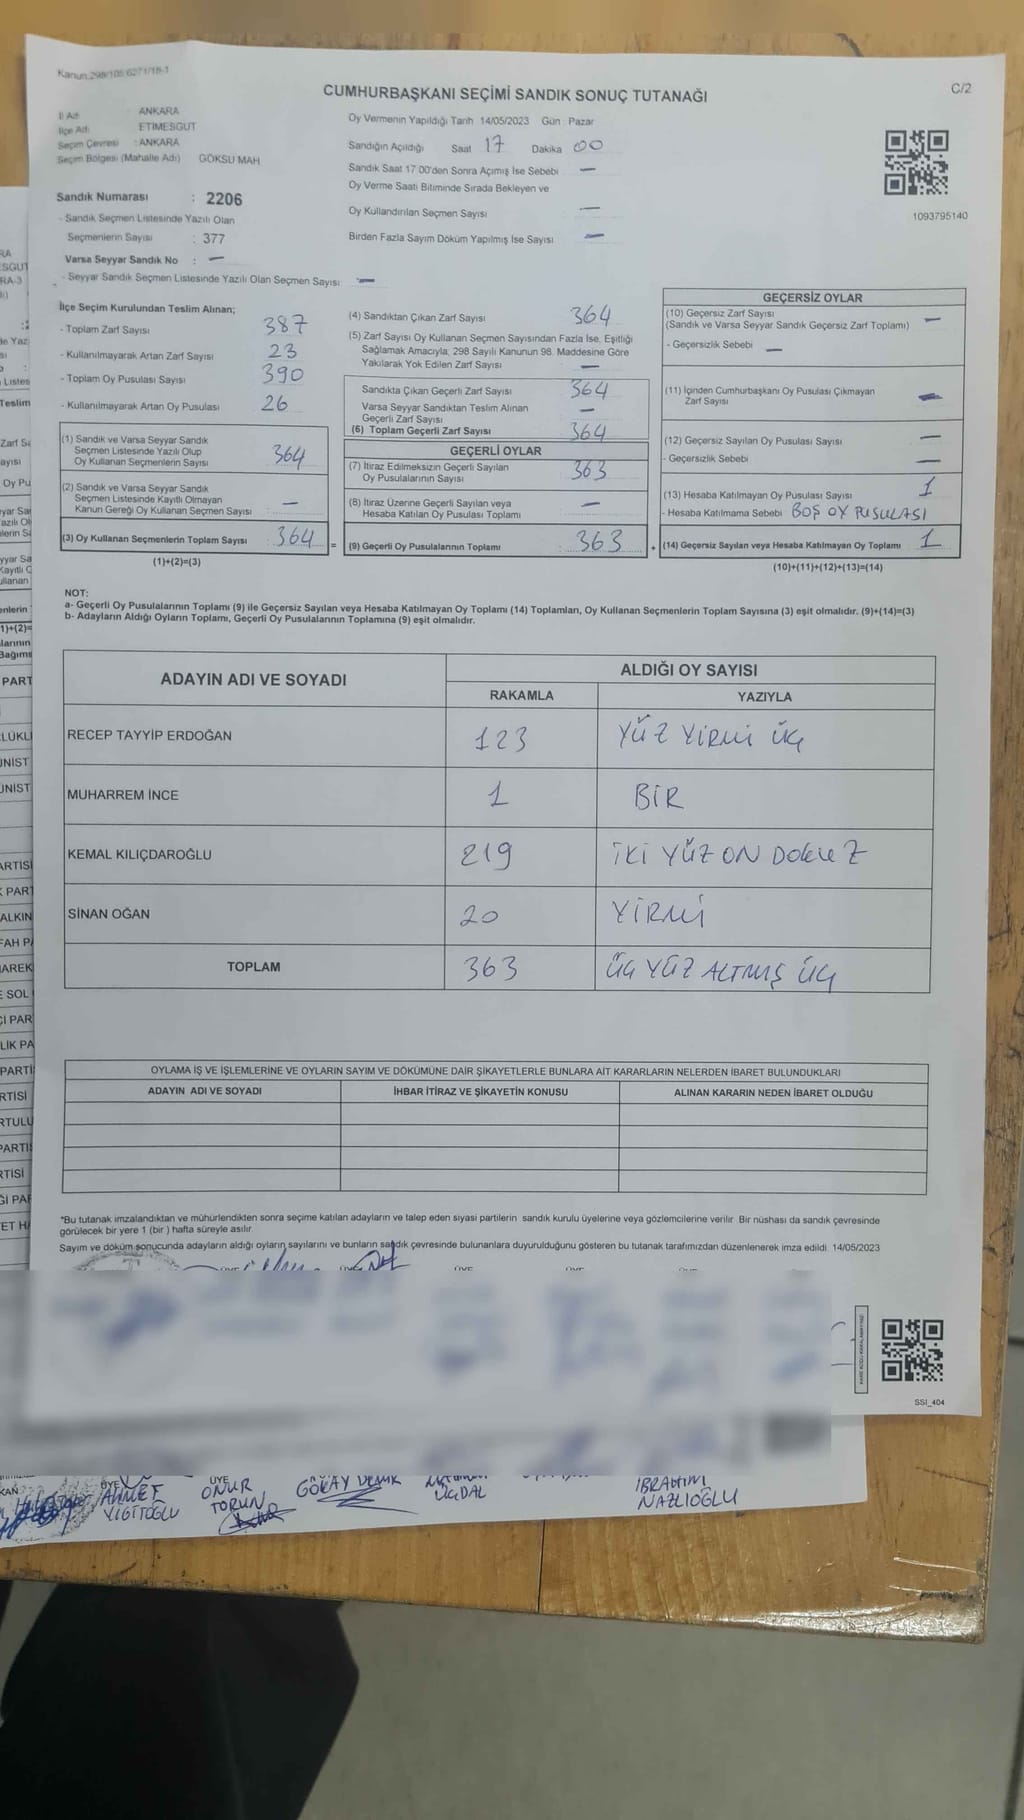 Kanun.298/105.6271/18-1
CUMHURBAŞKANI SEÇİMİ SANDIK SONUÇ TUTANAĞI
C/2
İl Adı : ANKARA
İlçe Adı : ETİMESGUT
Seçim Çevresi : ANKARA
Seçim Bölgesi (Mahalle Adı) GÖKSU MAH.
Sandık Numarası : 2206
- Sandık Seçmen Listesinde Yazılı Olan
Seçmenlerin Sayısı : 377
Varsa Seyyar Sandık No : —
- Seyyar Sandık Seçmen Listesinde Yazılı Olan Seçmen Sayısı —
Oy Vermenin Yapıldığı Tarih 14/05/2023 Gün : Pazar
Sandığın Açıldığı Saat 17 Dakika 00
Sandık Saat 17:00'den Sonra Açılmış İse Sebebi —
Oy Verme Saati Bitiminde Sırada Bekleyen ve
Oy Kullandırılan Seçmen Sayısı —
Birden Fazla Sayım Döküm Yapılmış İse Sayısı —
1093795140
İlçe Seçim Kurulundan Teslim Alınan;
- Toplam Zarf Sayısı 387
- Kullanılmayarak Artan Zarf Sayısı 23
- Toplam Oy Pusulası Sayısı 390
- Kullanılmayarak Artan Oy Pusulası 26
(1) Sandık ve Varsa Seyyar Sandık
Seçmen Listesinde Yazılı Olup
Oy Kullanan Seçmenlerin Sayısı 364
(2) Sandık ve Varsa Seyyar Sandık
Seçmen Listesinde Kayıtlı Olmayan
Kanun Gereği Oy Kullanan Seçmen Sayısı —
(3) Oy Kullanan Seçmenlerin Toplam Sayısı 364 =
(1)+(2)=(3)
(4) Sandıktan Çıkan Zarf Sayısı 364
(5) Zarf Sayısı Oy Kullanan Seçmen Sayısından Fazla İse, Eşitliği
Sağlamak Amacıyla; 298 Sayılı Kanunun 98. Maddesine Göre
Yakılarak Yok Edilen Zarf Sayısı —
Sandıkta Çıkan Geçerli Zarf Sayısı 364
Varsa Seyyar Sandıktan Teslim Alınan
Geçerli Zarf Sayısı —
(6) Toplam Geçerli Zarf Sayısı 364
GEÇERLİ OYLAR
(7) İtiraz Edilmeksizin Geçerli Sayılan
Oy Pusulalarının Sayısı 363
(8) İtiraz Üzerine Geçerli Sayılan veya
Hesaba Katılan Oy Pusulası Toplamı —
(9) Geçerli Oy Pusulalarının Toplamı : 363 +
GEÇERSİZ OYLAR
(10) Geçersiz Zarf Sayısı
(Sandık ve Varsa Seyyar Sandık Geçersiz Zarf Toplamı) —
- Geçersizlik Sebebi —
(11) İçinden Cumhurbaşkanı Oy Pusulası Çıkmayan
Zarf Sayısı —
(12) Geçersiz Sayılan Oy Pusulası Sayısı —
- Geçersizlik Sebebi —
(13) Hesaba Katılmayan Oy Pusulası Sayısı 1
- Hesaba Katılmama Sebebi BOŞ OY PUSULASI
(14) Geçersiz Sayılan veya Hesaba Katılmayan Oy Toplamı 1
(10)+(11)+(12)+(13)=(14)
NOT:
a- Geçerli Oy Pusulalarının Toplamı (9) ile Geçersiz Sayılan veya Hesaba Katılmayan Oy Toplamı (14) Toplamları, Oy Kullanan Seçmenlerin Toplam Sayısına (3) eşit olmalıdır. (9)+(14)=(3)
b- Adayların Aldığı Oyların Toplamı, Geçerli Oy Pusulalarının Toplamına (9) eşit olmalıdır.
ADAYIN ADI VE SOYADI ALDIĞI OY SAYISI
RAKAMLA YAZIYLA
RECEP TAYYİP ERDOĞAN 123 YÜZ YİRMİ ÜÇ
MUHARREM İNCE 1 BİR
KEMAL KILIÇDAROĞLU 219 İKİ YÜZ ON DOKUZ
SİNAN OĞAN 20 YİRMİ
TOPLAM 363 ÜÇ YÜZ ALTMIŞ ÜÇ
OYLAMA İŞ VE İŞLEMLERİNE VE OYLARIN SAYIM VE DÖKÜMÜNE DAİR ŞİKAYETLERLE BUNLARA AİT KARARLARIN NELERDEN İBARET BULUNDUKLARI
ADAYIN ADI VE SOYADI İHBAR İTİRAZ VE ŞİKAYETİN KONUSU ALINAN KARARIN NEDEN İBARET OLDUĞU
*Bu tutanak imzalandıktan ve mühürlendikten sonra seçime katılan adayların ve talep eden siyasi partilerin sandık kurulu üyelerine veya gözlemcilerine verilir. Bir nüshası da sandık çevresinde
görülecek bir yere 1 (bir ) hafta süreyle asılır.
Sayım ve döküm sonucunda adayların aldığı oyların sayılarını ve bunların sandık çevresinde bulunanlara duyurulduğunu gösteren bu tutanak tarafımızdan düzenlenerek imza edildi. 14/05/2023
SSI_404
ÜYE ÜYE
AHMET ONUR GÖKAY İBRAHİM
YİĞİTOĞLU TORUN ÜÇDAL NAZLIOĞLU